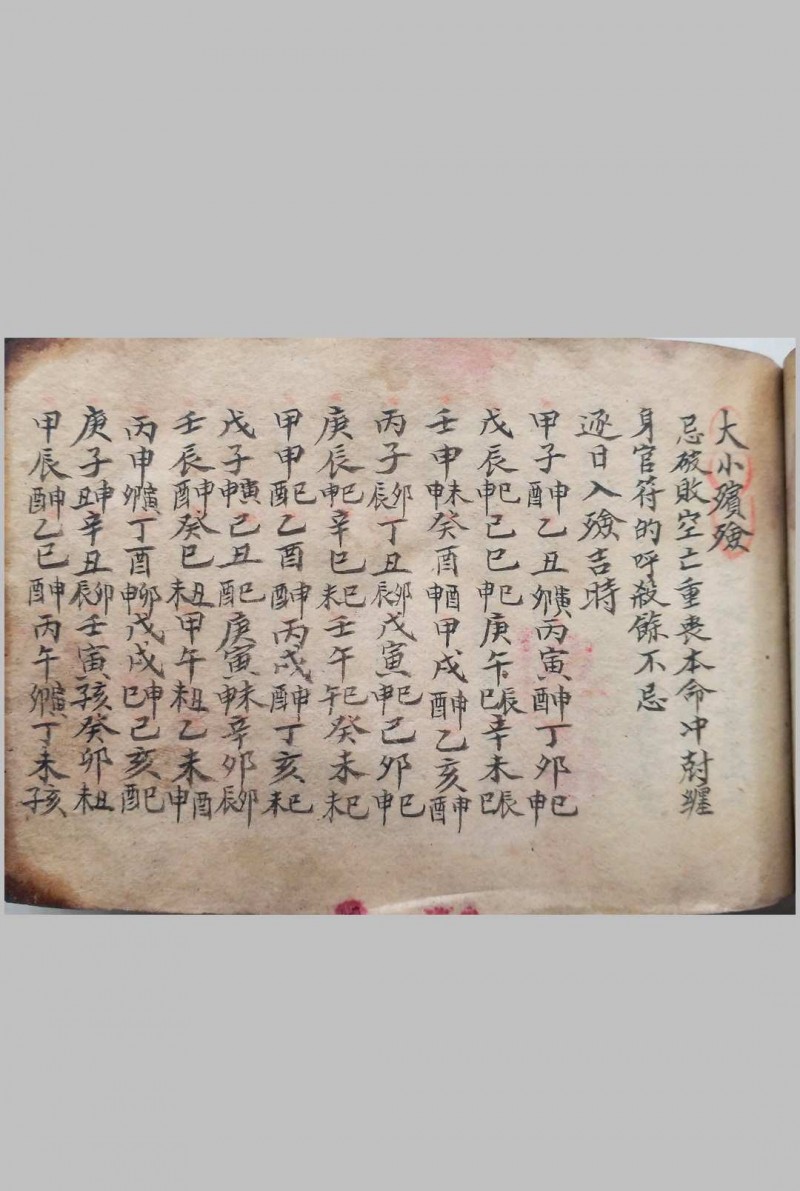 大小殯殮
忌破敗空亡重喪本命冲尅纏
身官符的呼殺餘不忌
逐日入殮吉時
甲子申酉乙丑寅卯丙寅申酉丁卯巳申
戊辰巳申己巳巳申庚午辰巳辛未辰巳
壬申未申癸酉酉申甲戌申酉乙亥申酉
丙子卯辰丁丑卯辰戊寅巳申己卯巳申
庚辰巳申辛巳巳未壬午巳午癸未巳未
甲申巳酉乙酉申酉丙戌申酉丁亥巳未
戊子寅申己丑巳酉庚寅未申辛卯卯辰
壬辰申酉癸巳丑未甲午丑未乙未酉申
丙申寅卯丁酉卯申戊戌申巳己亥巳酉
庚子申丑辛丑卯辰壬寅亥子癸卯丑未
甲辰申酉乙巳申酉丙午寅卯丁未亥子